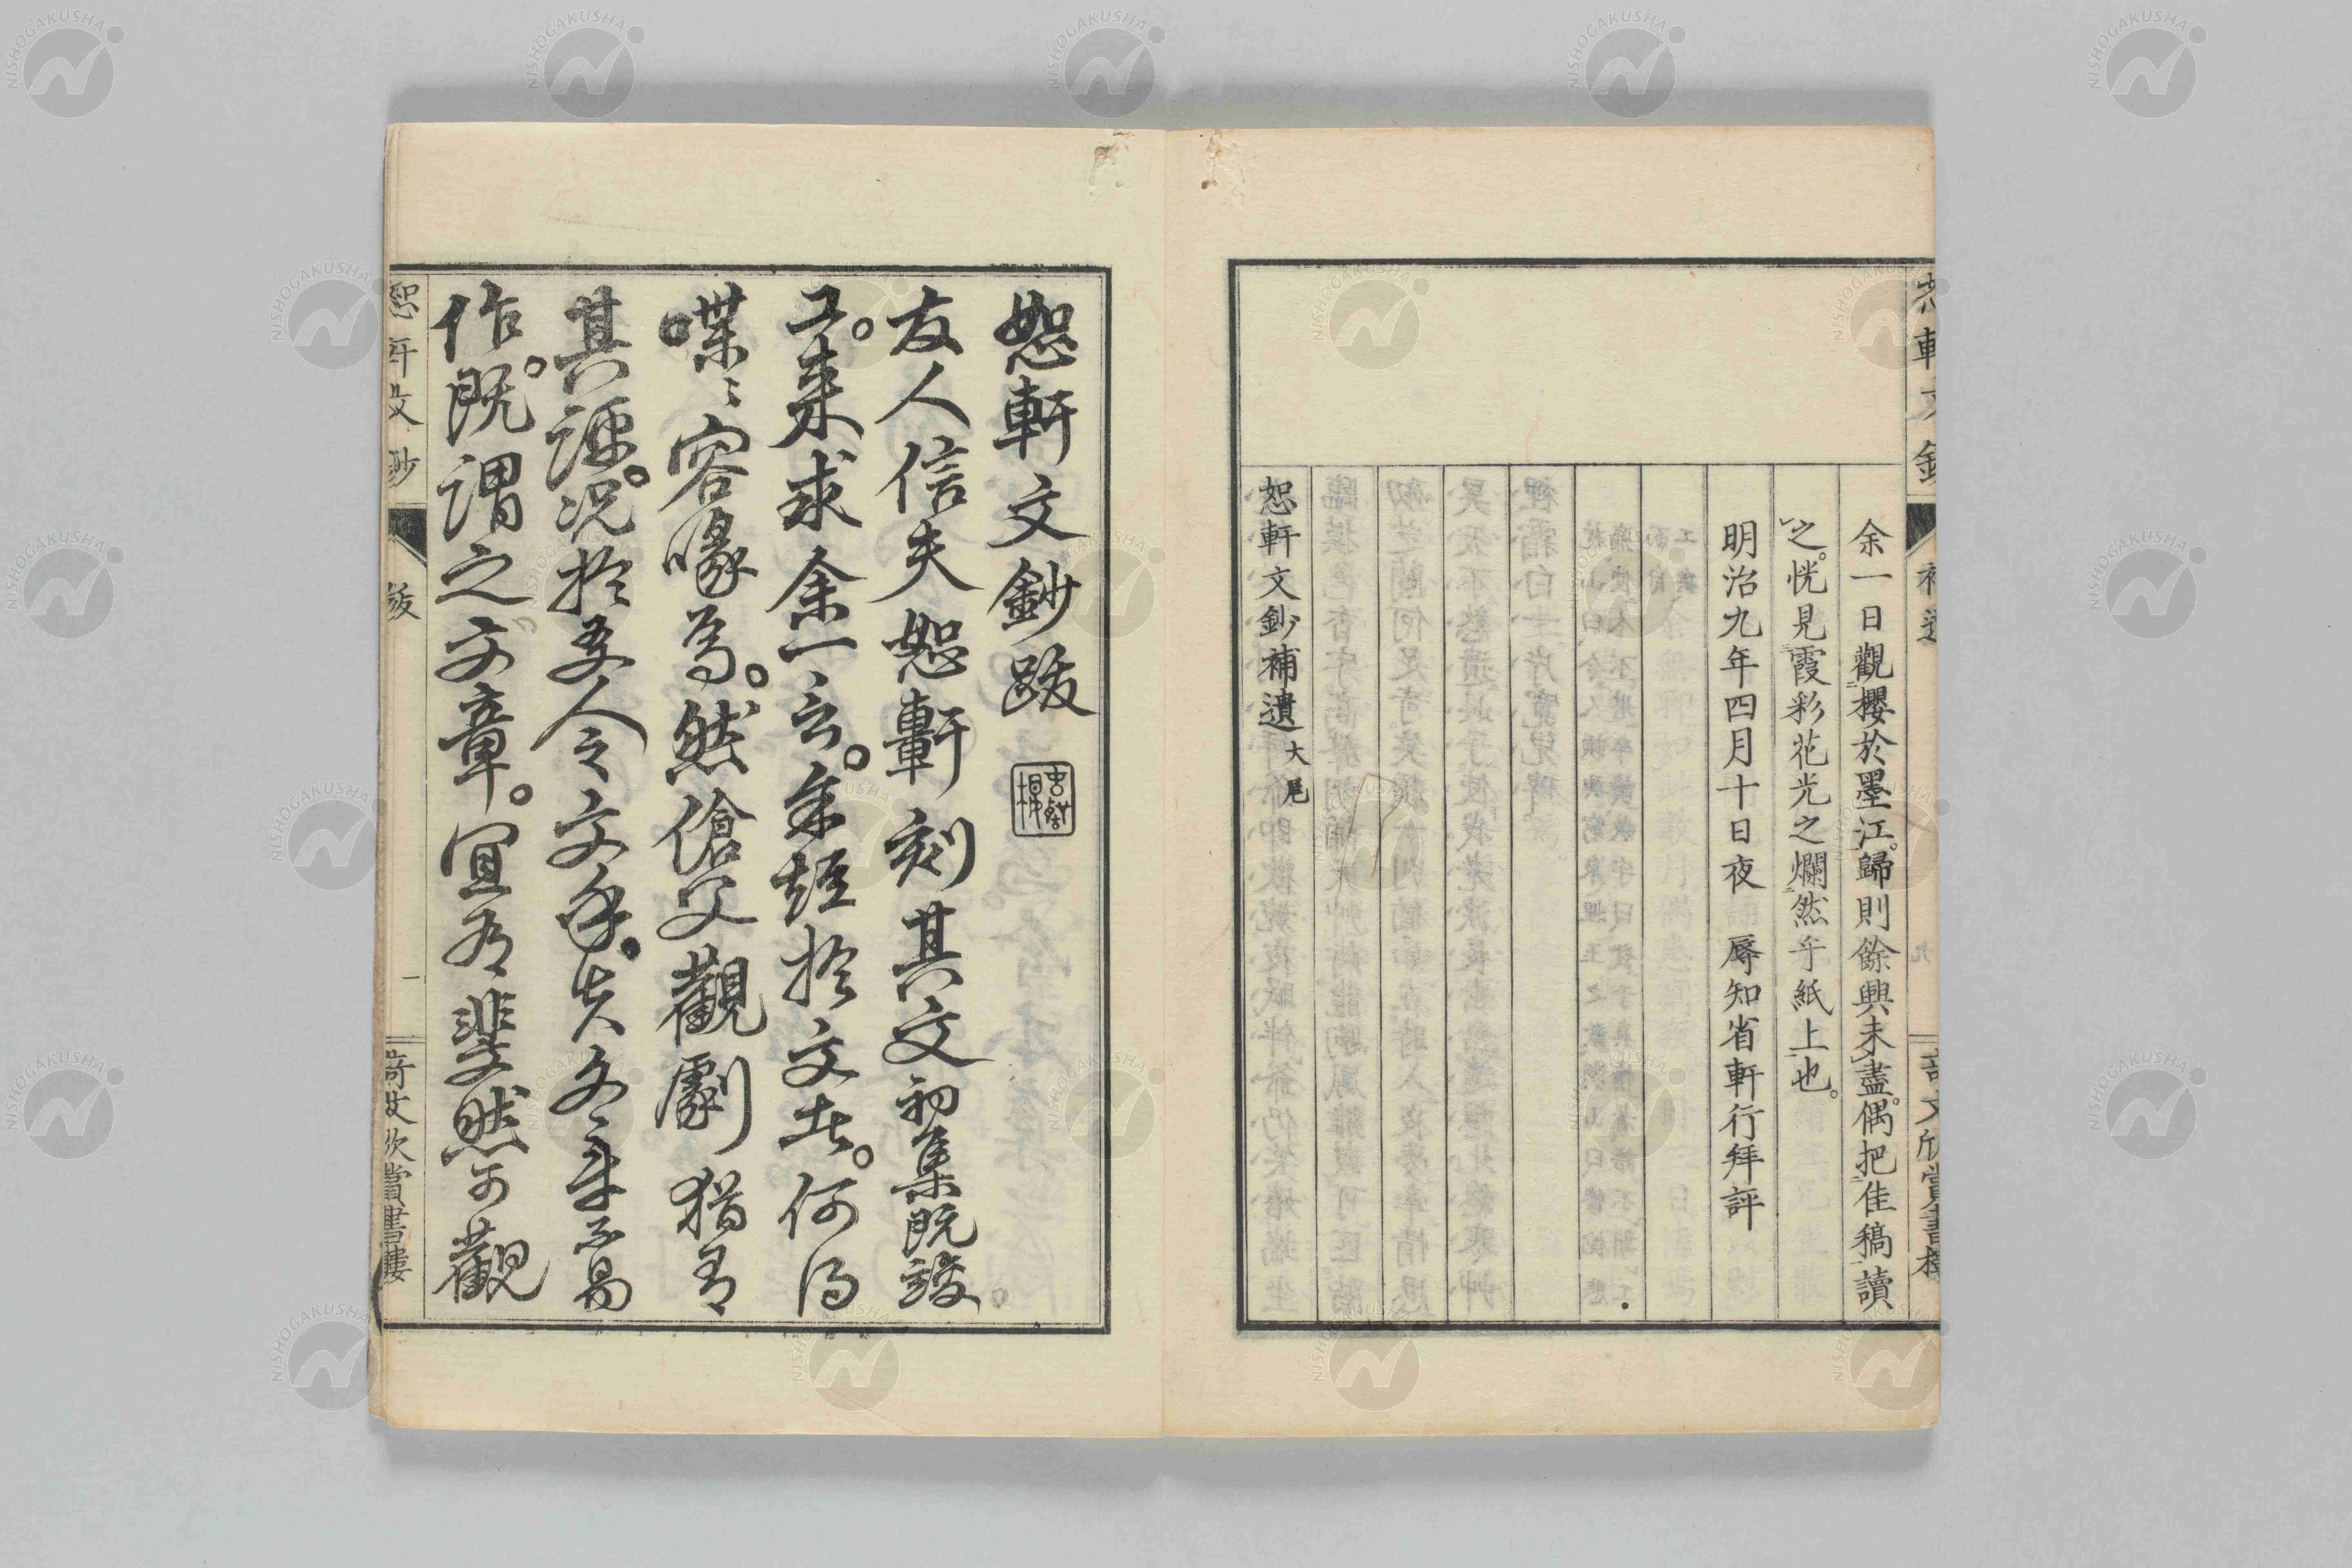 余一日觀櫻於墨江。歸則餘興未盡。偶把佳稿讀
之。恍見霞彩花光之爛然乎紙上也。
明治九年四月十日夜　辱知省軒行拜評
恕軒文鈔補遺大尾
恕軒文鈔跋
友人信夫恕軒刻其文初集既竣
工。來求余一言。余短於文甚。何得
喋〻容喙焉。然傖父觀劇猶有
其評。況於吾人之文乎。夫文章不易
作。既謂之文章。宜有斐然可觀
恕軒文鈔
跋
一
奇文欣賞書樓
恕軒文鈔
補遺
九
奇文欣賞書樓
NISHOGAKUSHA